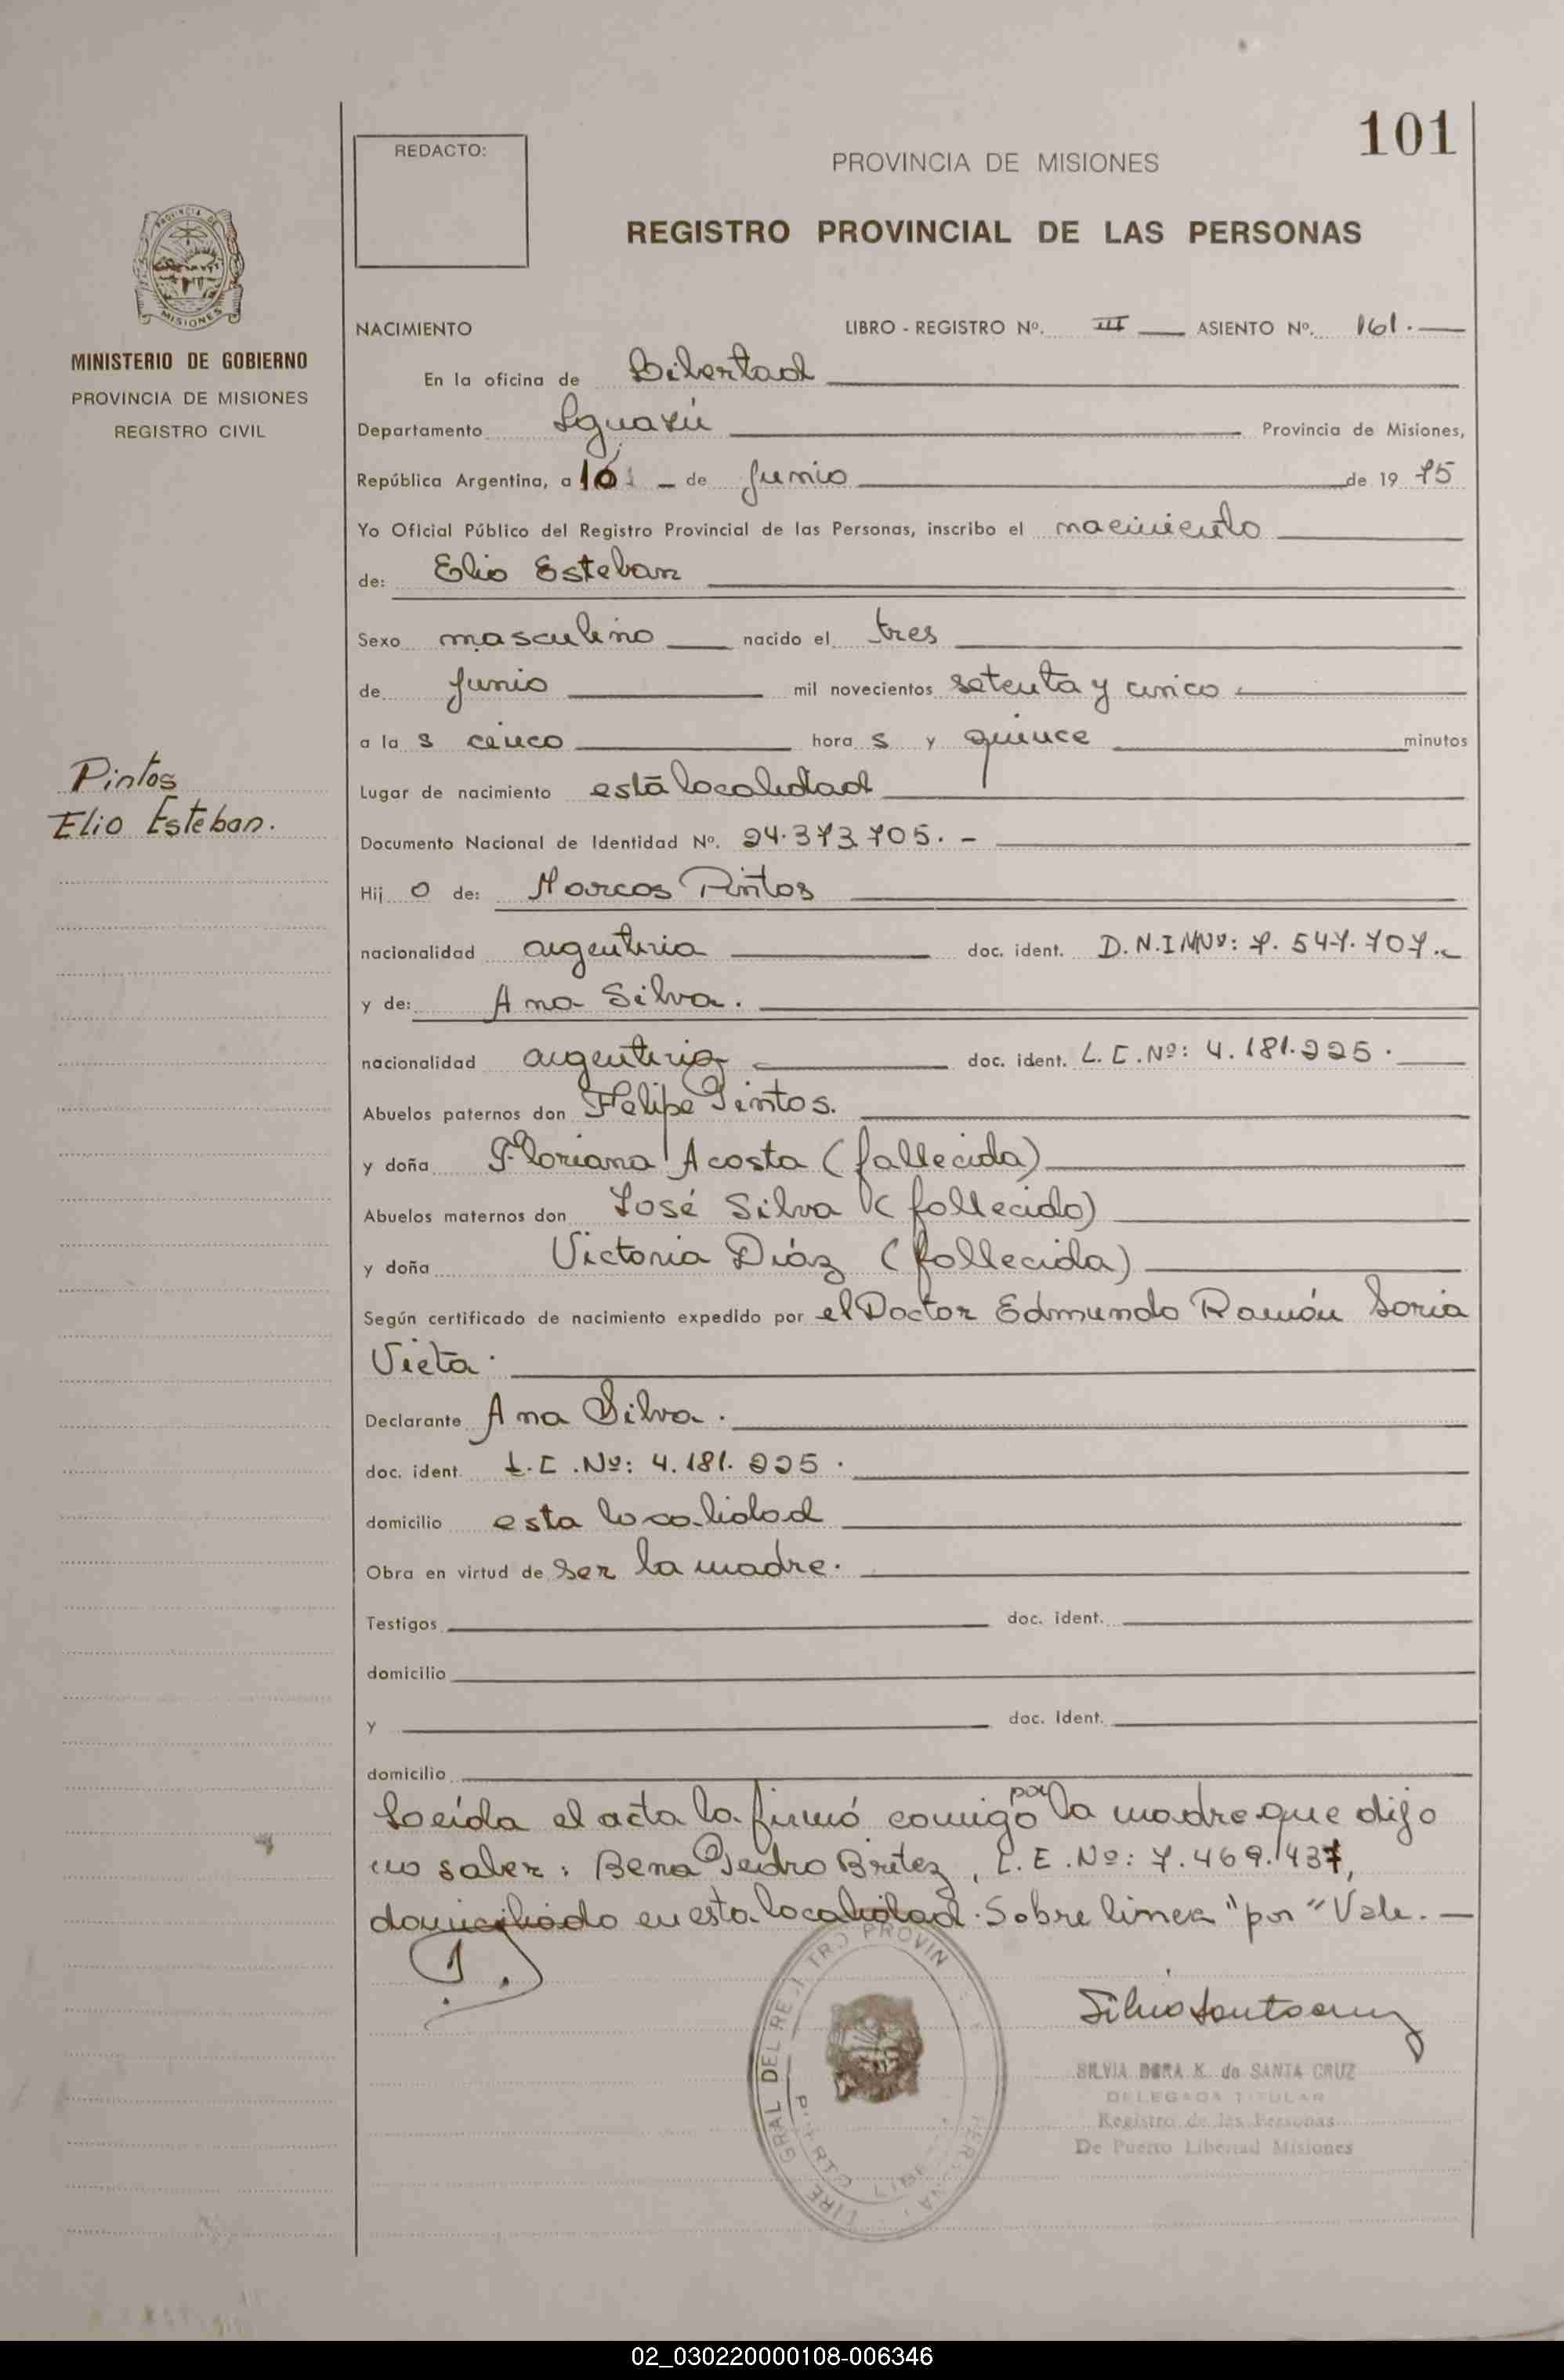 101
REDACTO:
PROVINCIA DE MISIONES
REGISTRO PROVINCIAL DE LAS PERSONAS
PROVINCIA DE
MISIONES
MINISTERIO DE GOBIERNO
PROVINCIA DE MISIONES
REGISTRO CIVIL
NACIMIENTO LIBRO - REGISTRO Nº. III ASIENTO Nº. 161.
En la oficina de Libertad
Departamento Iguazú Provincia de Misiones,
República Argentina, a de Junio de 1975
Yo Oficial Público del Registro Provincial de las Personas, inscribo el nacimiento
de: Elio Esteban
Sexo masculino nacido el tres
de Junio mil novecientos setenta y cinco
a las cinco horas y quince minutos
Pintos
Elio Esteban.
Lugar de nacimiento está localidad
Documento Nacional de Identidad Nº. 24.373.705. -
Hijo de: Marcos Pintos
nacionalidad argentina doc. ident. D.N.I. 7.547.707.
y de: Ana Silva.
nacionalidad argentina doc. ident. L.C.Nº: 4.181.225.
Abuelos paternos don Felipe Pintos.
y doña Floriana Acosta (fallecida)
Abuelos maternos don José Silva (fallecido)
y doña Victoria Diáz (fallecida)
Según certificado de nacimiento expedido por el Doctor Edmundo Ramón Soria
Vieta.
Declarante Ana Silva.
doc. ident. L.C.Nº: 4.181.225.
domicilio esta localidad
Obra en virtud de ser la madre.
Testigos doc. ident.
domicilio
y doc. ident.
domicilio
Leída el acta la firmó comigo por la madre que dijo
no saber: Bena Pedro Britez, L.E.Nº: 7.469.437,
domiciliado en esta localidad. Sobre linea "por" Vale. -
SILVIA DORA K. de SANTA CRUZ
DELEGADA TITULAR
Registro de las Personas
De Puerto Libertad Misiones
02_030220000108-006346